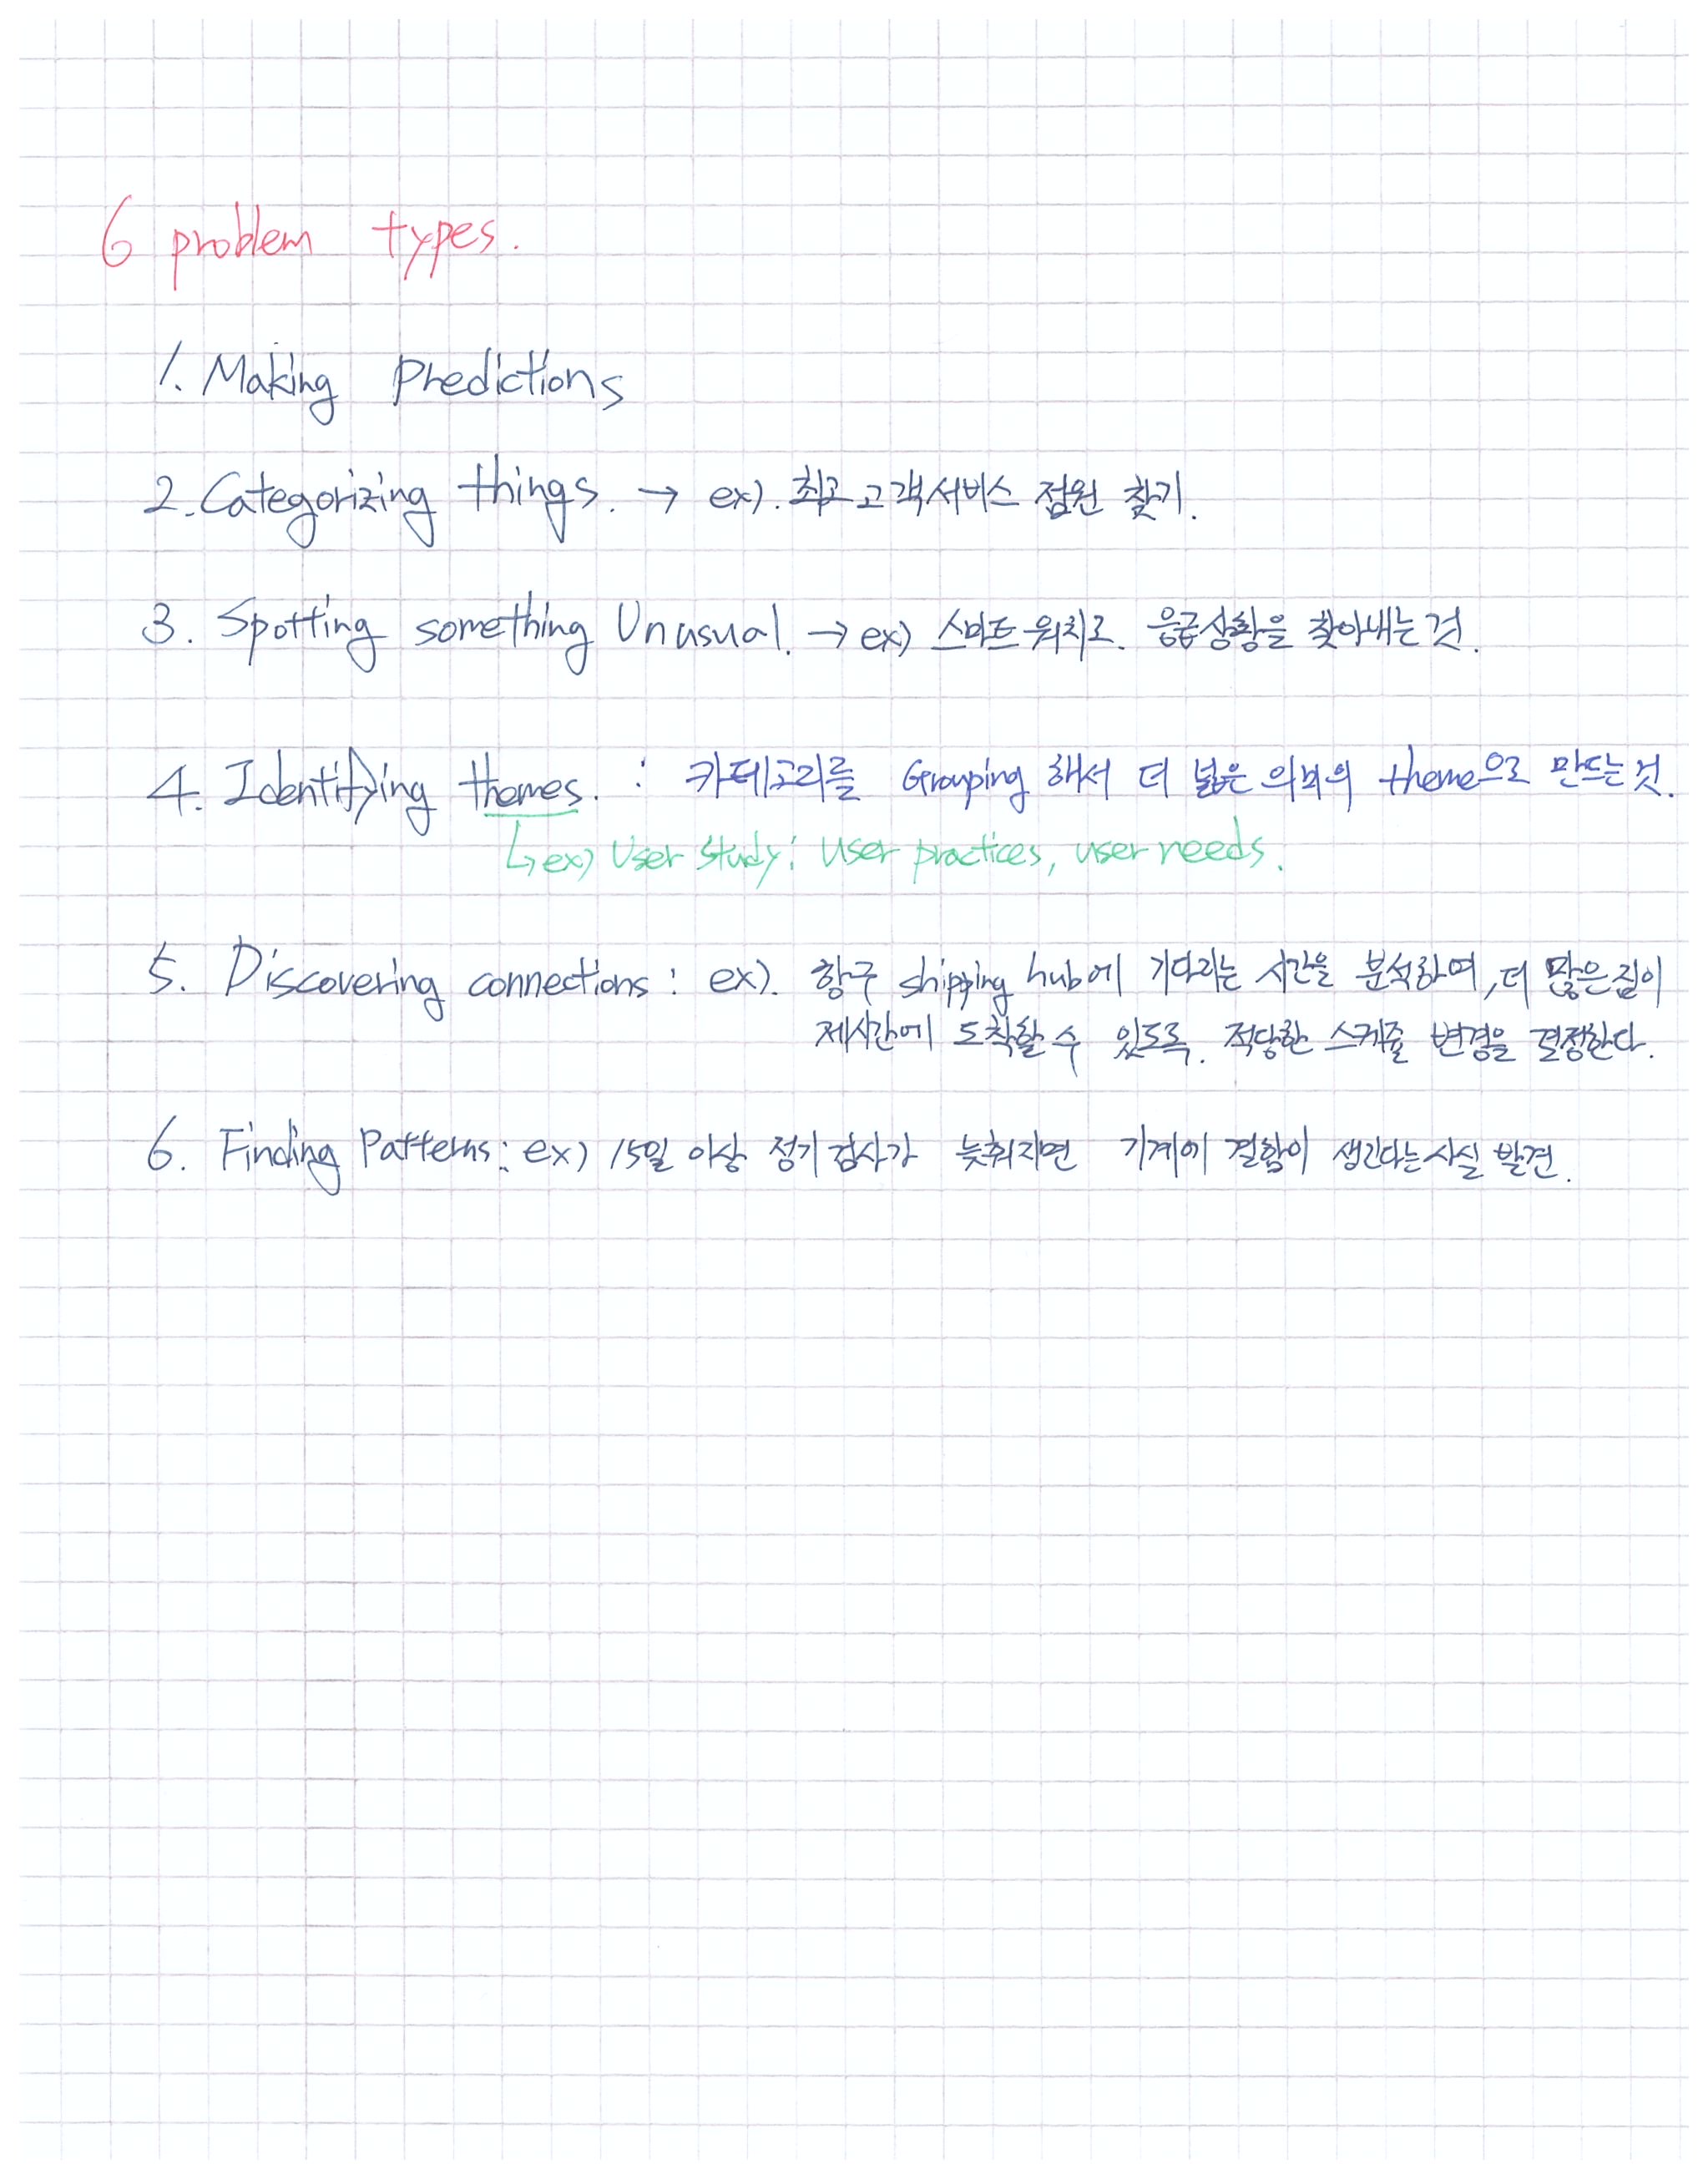 6 problem types.
1. Making Predictions
2. Categorizing things. → ex). 최고 고객서비스 점원 찾기.
3. Spotting something Unusual. → ex) 스마트 워치로. 응급상황을 찾아내는 것.
4. Identifying themes. : 카테고리를 Grouping 해서 더 넓은 의미의 theme으로 만드는 것.
↳ ex) User Study: User practices, user needs.
5. Discovering connections: ex). 항구 shipping hub에 기다리는 시간을 분석하여, 더 많은 짐이
제시간에 도착할 수 있도록. 적당한 스케쥴 변경을 결정한다.
6. Finding Patterns: ex) 15일 이상 정기 검사가 늦춰지면 기계에 결함이 생긴다는 사실 발견.